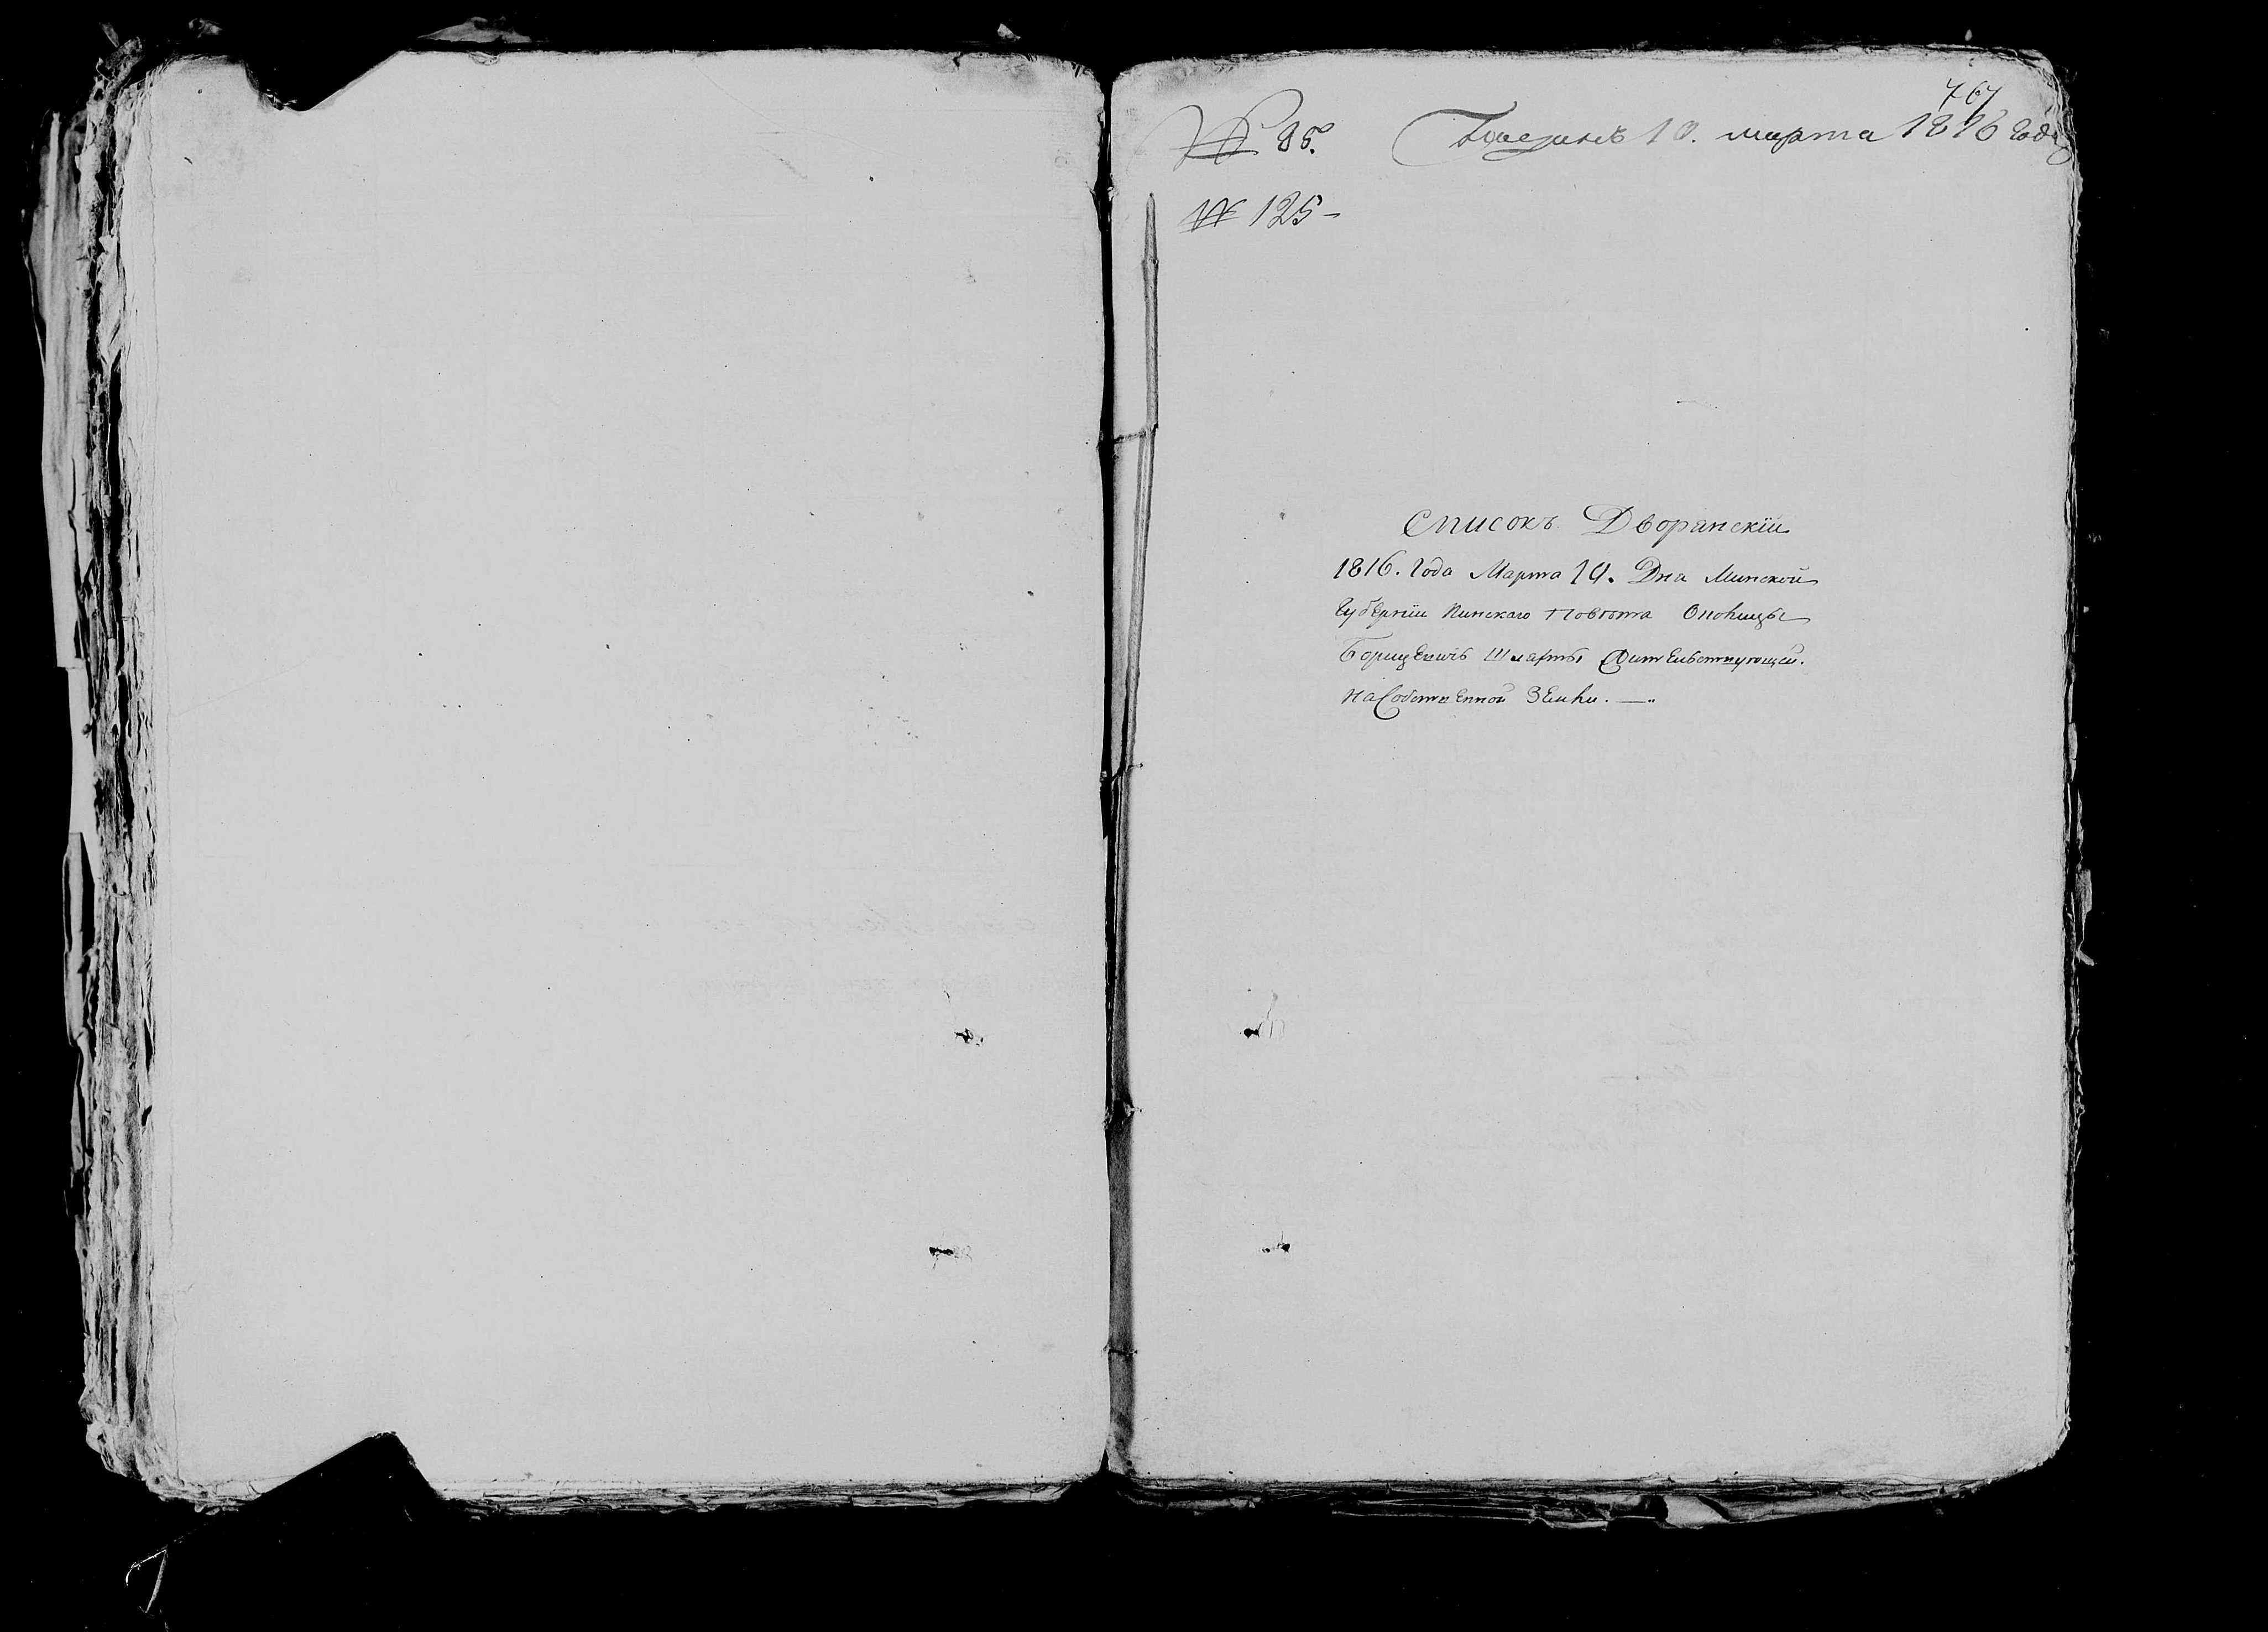 767
№ 88. Подлинъ 10. марта 1816 года
№ 125 —
Списокъ Дворянскій
1816. Года Марта 10. Дня Минской
Губерніи Пинскаго Повѣта Околицы
Борицевичъ Шляхты Жительствующей.
на Собственной Землѣ. —